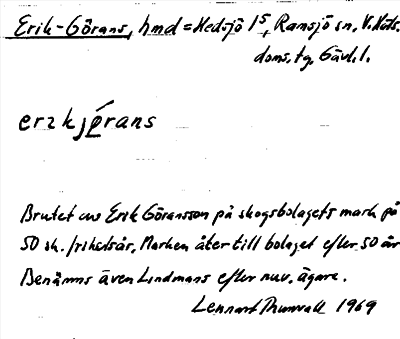 Erik-Görans, hmd = Hedsjö 1⁵, Ransjö sn, V. Häls.
doms, tg, Gävl. l.
erɩkjǿ̱rans
Brutet av Erik Göransson på skogsbolagets mark på
50 sk. frihetsår, Marken åter till bolaget efter 50 år
Benämns även Lindmans efter nuv. ägare.
Lennart Thunwall 1969